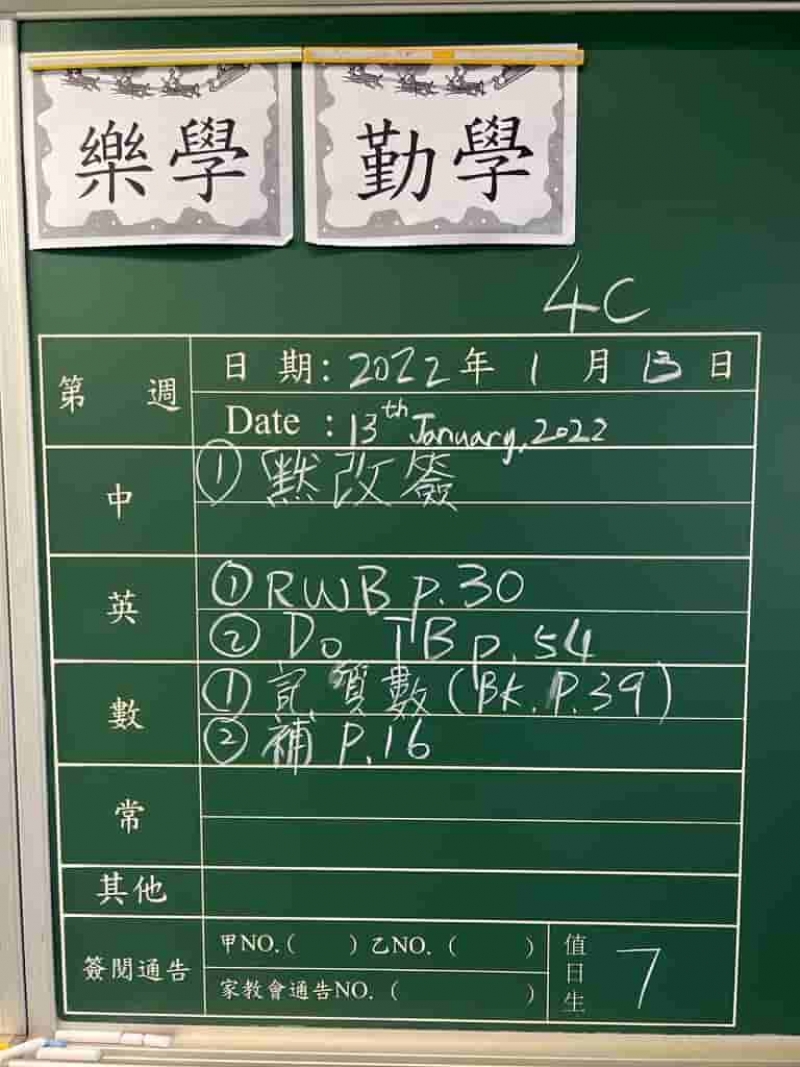 樂學 勤學
4C
第 週
日期：2022年1月13日
Date : 13th January, 2022
中
① 默改簽
英
① RWB p.30
② Do TB p.54
數
① 記質數(BK.P.39)
② 補 P.16
常
其他
簽閱通告
甲NO.( ) 乙NO. ( )
家教會通告NO. ( )
值日生 7